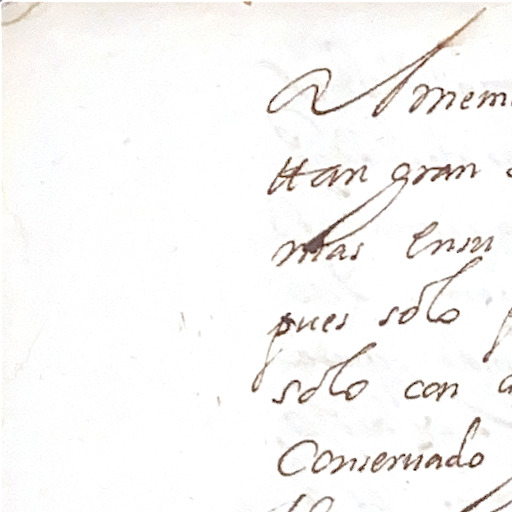 mem
ttan gran
mas ensu
pues solo p
solo con a
Conseruado